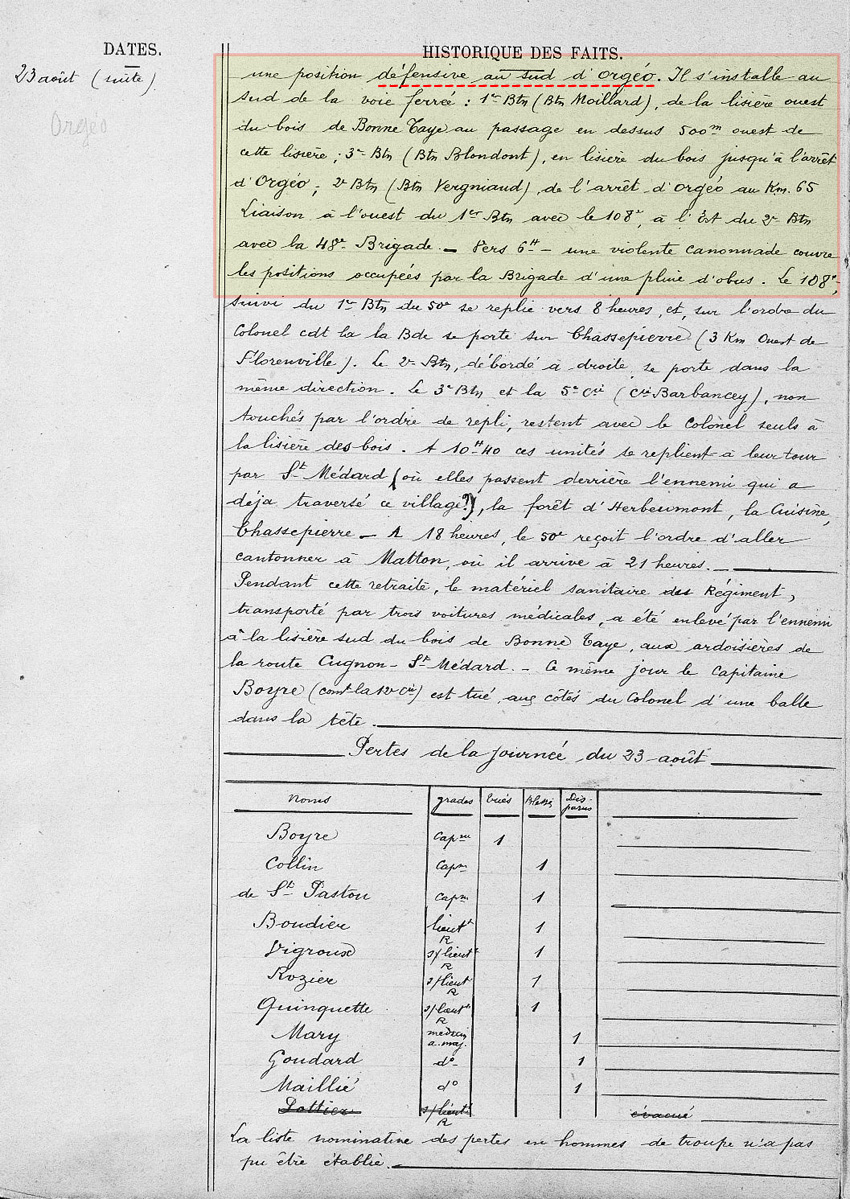 DATES.
HISTORIQUE DES FAITS.
23 août (suite)
Orgéo
une position défensive au sud d'Orgéo. Il s'installe au
sud de la voie ferrée : 1er Btn (Btn Moillard), de la lisière ouest
du bois de Bonne Taye au passage en dessus 500m ouest de
cette lisière ; 3e Btn (Btn Blondont), en lisière du bois jusqu'à l'arrêt
d'Orgéo ; 2e Btn (Btn Vergniaud), de l'arrêt d'Orgéo au Km. 65
Liaison à l'ouest du 1er Btn avec le 108e, à l'Est du 2e Btn
avec la 48e Brigade. — Vers 6H — une violente canonnade couvre
les positions occupées par la Brigade d'une pluie d'obus. Le 108e,
suivi du 1er Btn du 50e se replie vers 8 heures, et, sur l'ordre du
Colonel cdt la la Bde se porte sur Chassepierre (3 Km Ouest de
Florenville). Le 2e Btn, débordé à droite, se porte dans la
même direction. Le 3e Btn et la 5e Cie (Cie Barbancey), non
touchés par l'ordre de repli, restent avec le Colonel seuls à
la lisière des bois. A 10H40 ces unités se replient à leur tour
par St Médard (où elles passent derrière l'ennemi qui a
déja traversé ce village?), la forêt d'Herbeumont, la Cuisine,
Chassepierre — A 18 heures, le 50e reçoit l'ordre d'aller
cantonner à Matton, où il arrive à 21 heures. —
Pendant cette retraite, le matériel sanitaire des Régiment,
transporté par trois voitures médicales, a été enlevé par l'ennemi
à la lisière sud du bois de Bonne Taye, aux ardoisières de
la route Cugnon - St Médard. — Ce même jour le Capitaine
Boyre (comt la 12e Cie) est tué aux côtés du Colonel d'une balle
dans la tête.
Pertes de la journée du 23 août
noms grades tués blessés Dis-parus
Boyre Capne 1
Collin Capne 1
de St Pastou Capne 1
Boudier lieutt R 1
Vigroux s/lieutt R 1
Rozier s/lieut R 1
Quinquette s/lieutt R 1
Mary médecin a. maj. 1
Goudard do 1
Maillié do 1
Pottier s/lieutt R évacué
La liste nominative des pertes en hommes de troupe n'a pas
pu être établie.